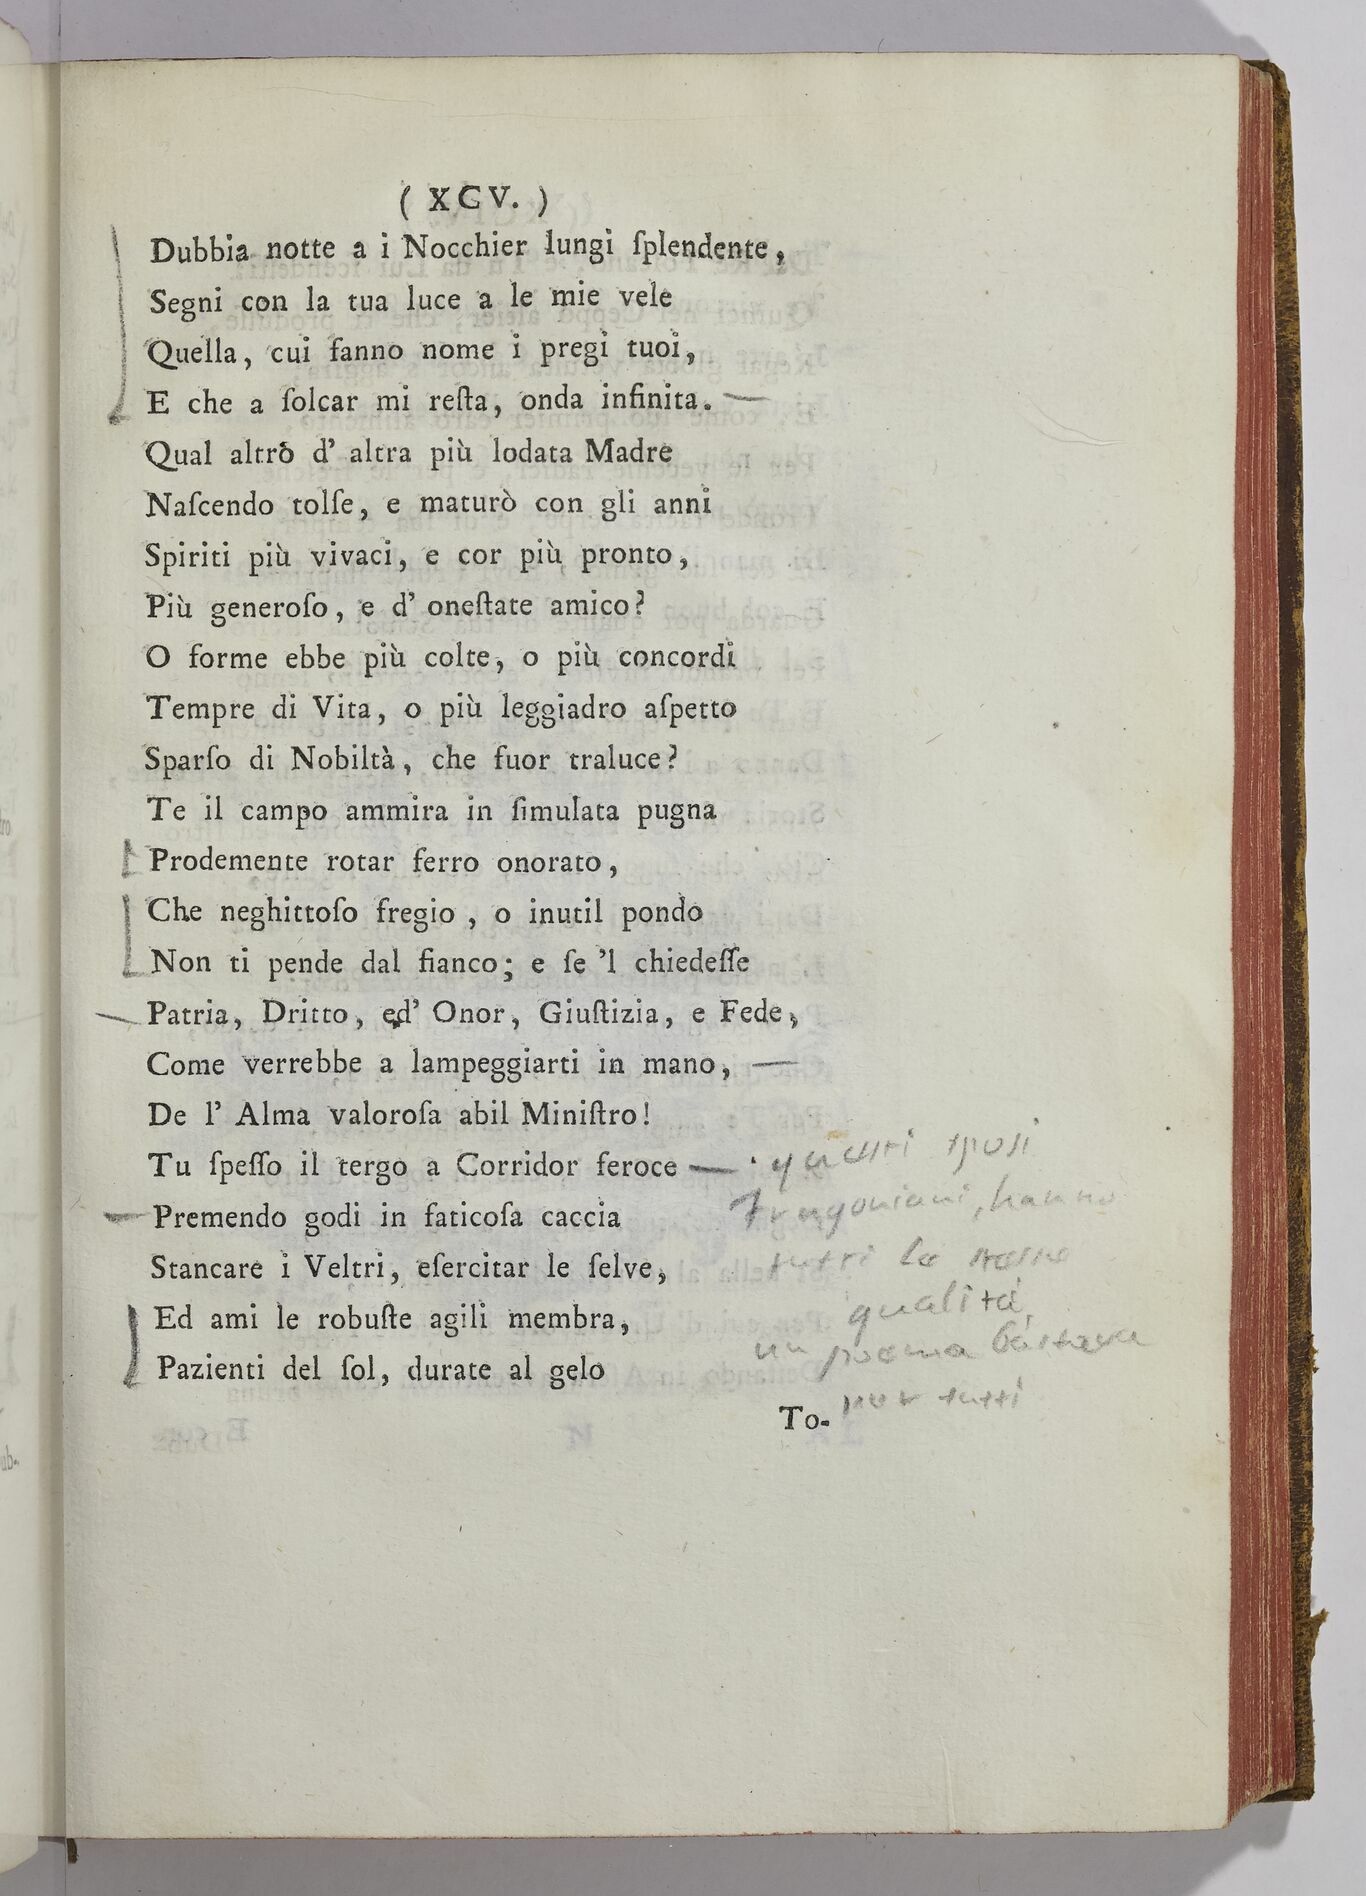 ( XCV. )
Dubbia notte a i Nocchier lungi ſplendente,
Segni con la tua luce a le mie vele
Quella, cui fanno nome i pregi tuoi,
E che a ſolcar mi reſta, onda infinita.
Qual altrò d' altra più lodata Madre
Naſcendo tolſe, e maturò con gli anni
Spiriti più vivaci, e cor più pronto,
Più generoſo, e d' oneſtate amico?
O forme ebbe più colte, o più concordi
Tempre di Vita, o più leggiadro aſpetto
Sparſo di Nobiltà, che fuor traluce?
Te il campo ammira in ſimulata pugna
Prodemente rotar ferro onorato,
Che neghittoſo fregio, o inutil pondo
Non ti pende dal fianco; e ſe 'l chiedeſſe
Patria, Dritto, ed' Onor, Giuſtizia, e Fede,
Come verrebbe a lampeggiarti in mano,
De l' Alma valoroſa abil Miniſtro!
Tu ſpeſſo il tergo a Corridor feroce
Premendo godi in faticoſa caccia
Stancare i Veltri, eſercitar le ſelve,
Ed ami le robuſte agili membra,
Pazienti del ſol, durate al gelo
To-
questi sposi
Frugoniani, hanno
tutti le stesse
qualità,
un poema bastava
per tutti
ub.